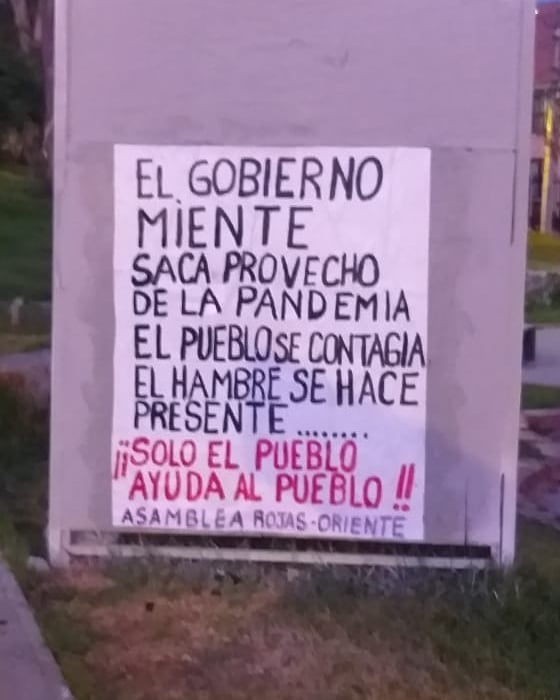 EL GOBIERNO
MIENTE
SACA PROVECHO
DE LA PANDEMIA
EL PUEBLO SE CONTAGIA
EL HAMBRE SE HACE
PRESENTE ........
¡¡SOLO EL PUEBLO
AYUDA AL PUEBLO !!
ASAMBLEA ROJAS-ORIENTE